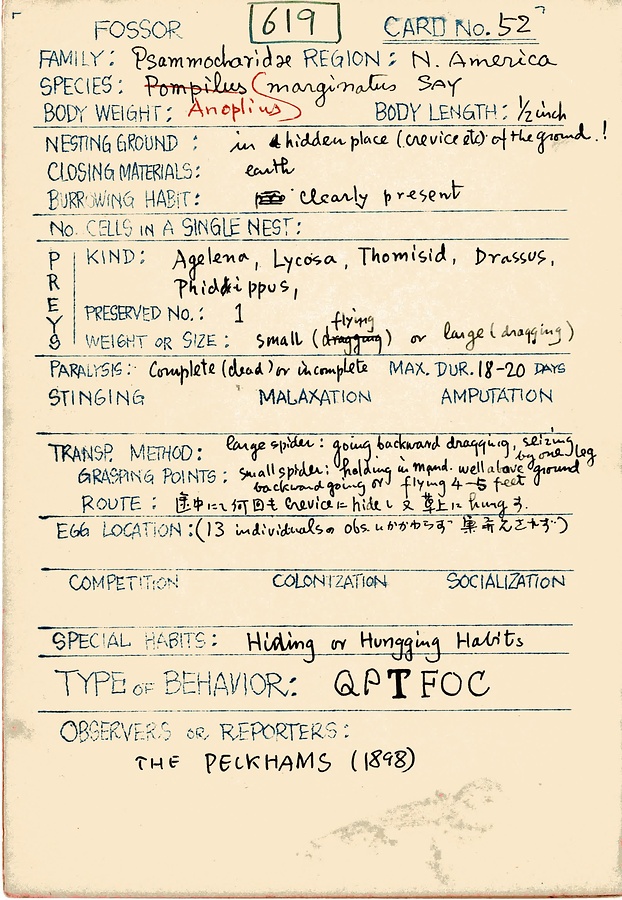 619
FOSSOR CARD No. 52
FAMILY: Psammocharidae REGION: N. America
SPECIES: Pompilus (marginatus SAY
Anoplius)
BODY WEIGHT: BODY LENGTH: 1/2 inch
NESTING GROUND : in a hidden place (crevice etc) of the ground.!
CLOSING MATERIALS: earth
BURROWING HABIT: clearly present
No. CELLS IN A SINGLE NEST:
PREYS
KIND: Agelena, Lycosa, Thomisid, Drassus,
Phidippus,
PRESERVED No.: 1
flying
WEIGHT OR SIZE: small (dragging) or large (dragging)
PARALYSIS: Complete (dead) or incomplete MAX. DUR. 18-20 DAYS
STINGING MALAXATION AMPUTATION
TRANSP. METHOD: large spider: going backward dragging, seizing by one leg
GRASPING POINTS: small spider: holding in mand. well above ground
backward going or flying 4-5 feet
ROUTE: 途中にて何回も crevice に hide し又草上に hung す.
EGG LOCATION: (13 individuals の obs. にかかわらず 巣みえさせず)
COMPETITION COLONIZATION SOCIALIZATION
SPECIAL HABITS: Hiding or Hungging Habits
TYPE OF BEHAVIOR: QPTFOC
OBSERVERS OR REPORTERS:
THE PECKHAMS (1898)